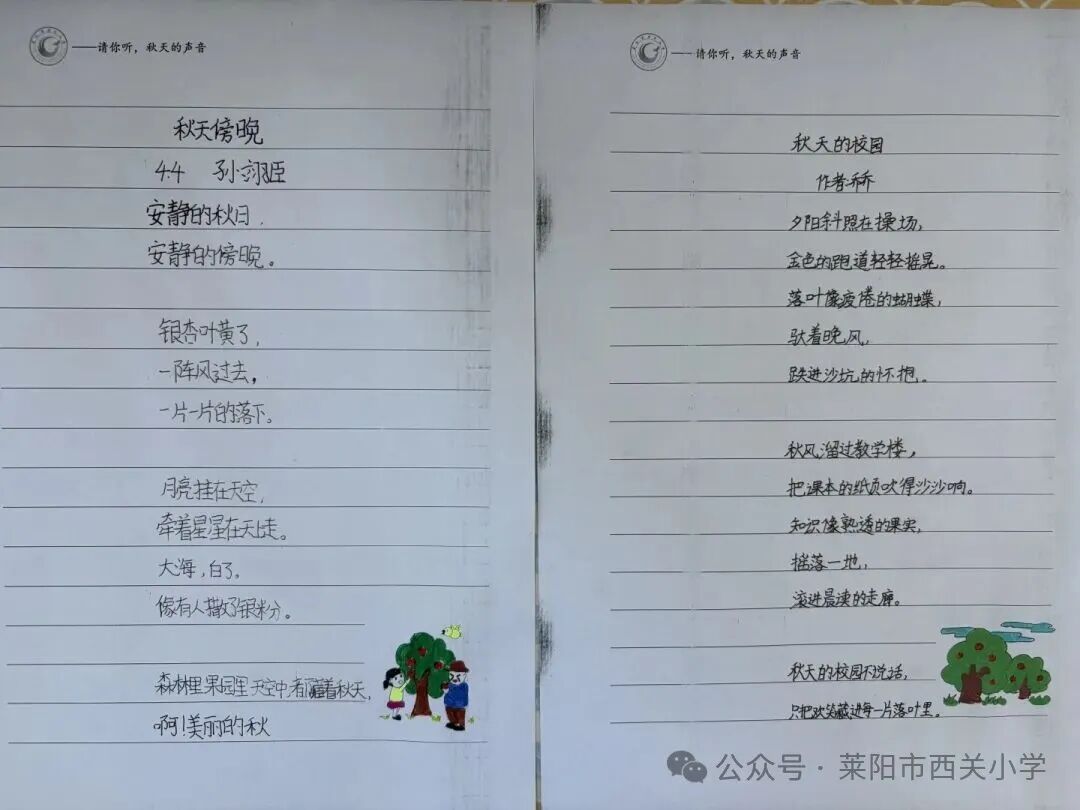 ——请你听，秋天的声音
秋天傍晚
4.4 孙翊臣
安静的秋日，
安静的傍晚。
银杏叶黄了，
一阵风过去，
一片一片的落下。
月亮挂在天空，
牵着星星在天上走。
大海，白了。
像有人撒了银粉。
森林里果园里天空中都藏着秋天，
啊！美丽的秋
——请你听，秋天的声音
秋天的校园
作者：乔乔
夕阳斜照在操场，
金色的跑道轻轻摇晃。
落叶像疲倦的蝴蝶，
驮着晚风，
跌进沙坑的怀抱。
秋风溜过教学楼，
把课本的纸页吹得沙沙响。
知识像熟透的果实，
摇落一地，
滚进晨读的走廊。
秋天的校园不说话，
只把欢笑藏进每一片落叶里。
公众号·莱阳市西关小学